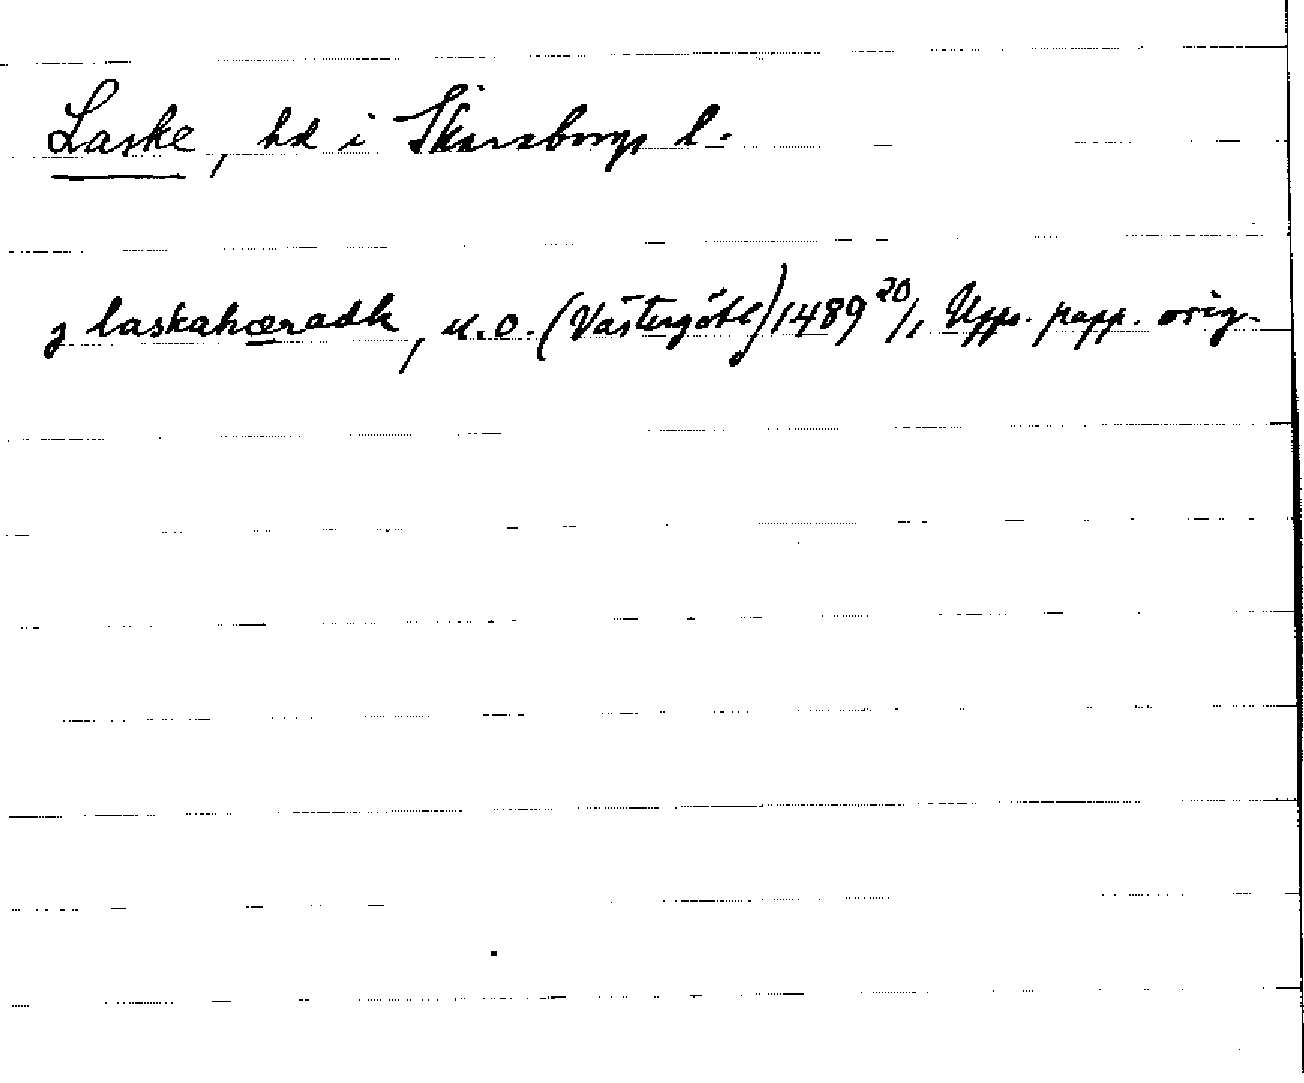 Laske, hd i Skaraborgs l.
j laskahæradh, u.o. (Västergötl) 1489 20/1 Upps. papp. orig.